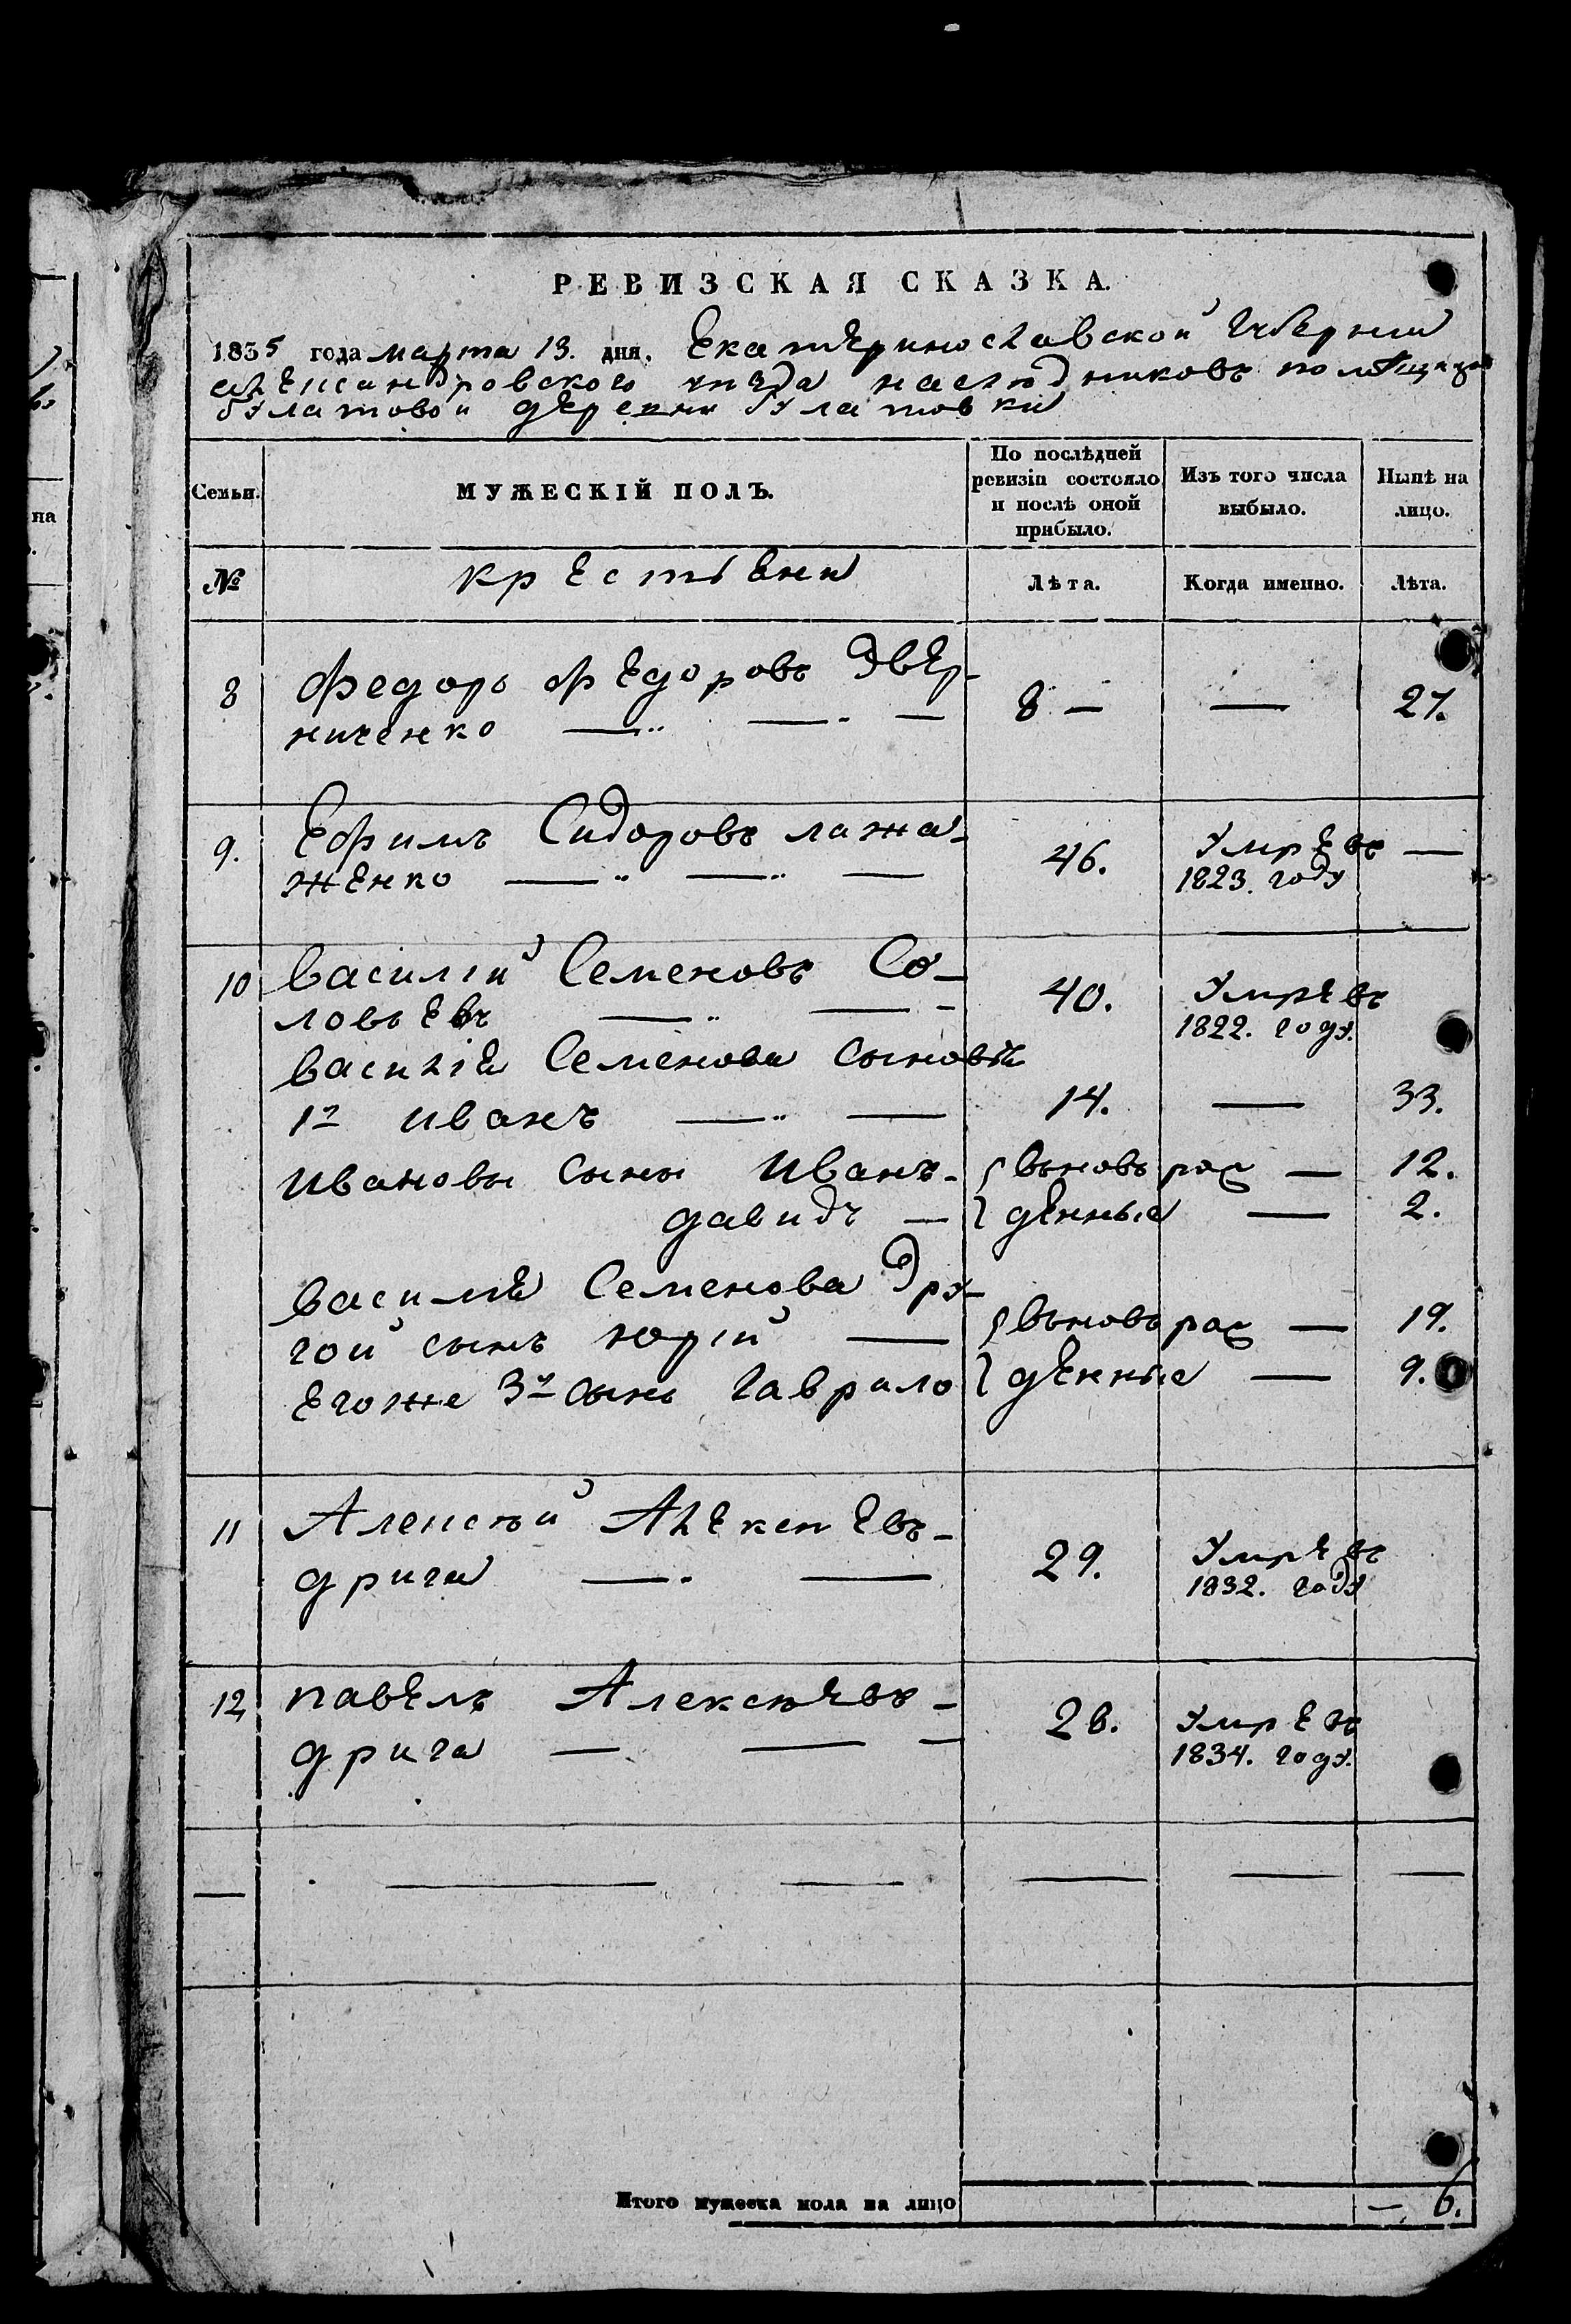 РЕВИЗСКАЯ СКАЗКА.
1835 года марта 13. дня. Екатеринославской Губернии
александровского уезда наследниковъ помѣщицы
булатовой деревни булатовки
Семьи.
МУЖЕСКІЙ ПОЛЪ.
По послѣдней ревизіи состояло и послѣ оной прибыло.
Изъ того числа выбыло.
Нынѣ на лицо.
№
крестьени
Лѣта.
Когда именно.
Лѣта.
8 Федоръ Федоровъ Двер-
ниченко 8 — — 27.
9. Ефимъ Сидоровъ лажа-
женко 46. Умревъ —
1823. году
10 Василій Семеновъ Со-
ловьевъ 40. Умревъ
1822. году.
Василіе Семенова сыновьи
1й иванъ — 14. — 33.
Ивановы сыны Иванъ - вьновь рож — 12.
давидъ — денные — 2.
Василие Семенова Дру-
гой сынъ юрій — вьновь рож — 19.
егоже 3й сынъ Гаврило денные — 9.
11 Алексѣй Алексеевъ -
дрига 29. Умревъ
1832. году
12 павелъ Алексѣевъ -
дрига 28. Умревъ
1834. году.
Итого мужеска пола на лицо — 6.
на